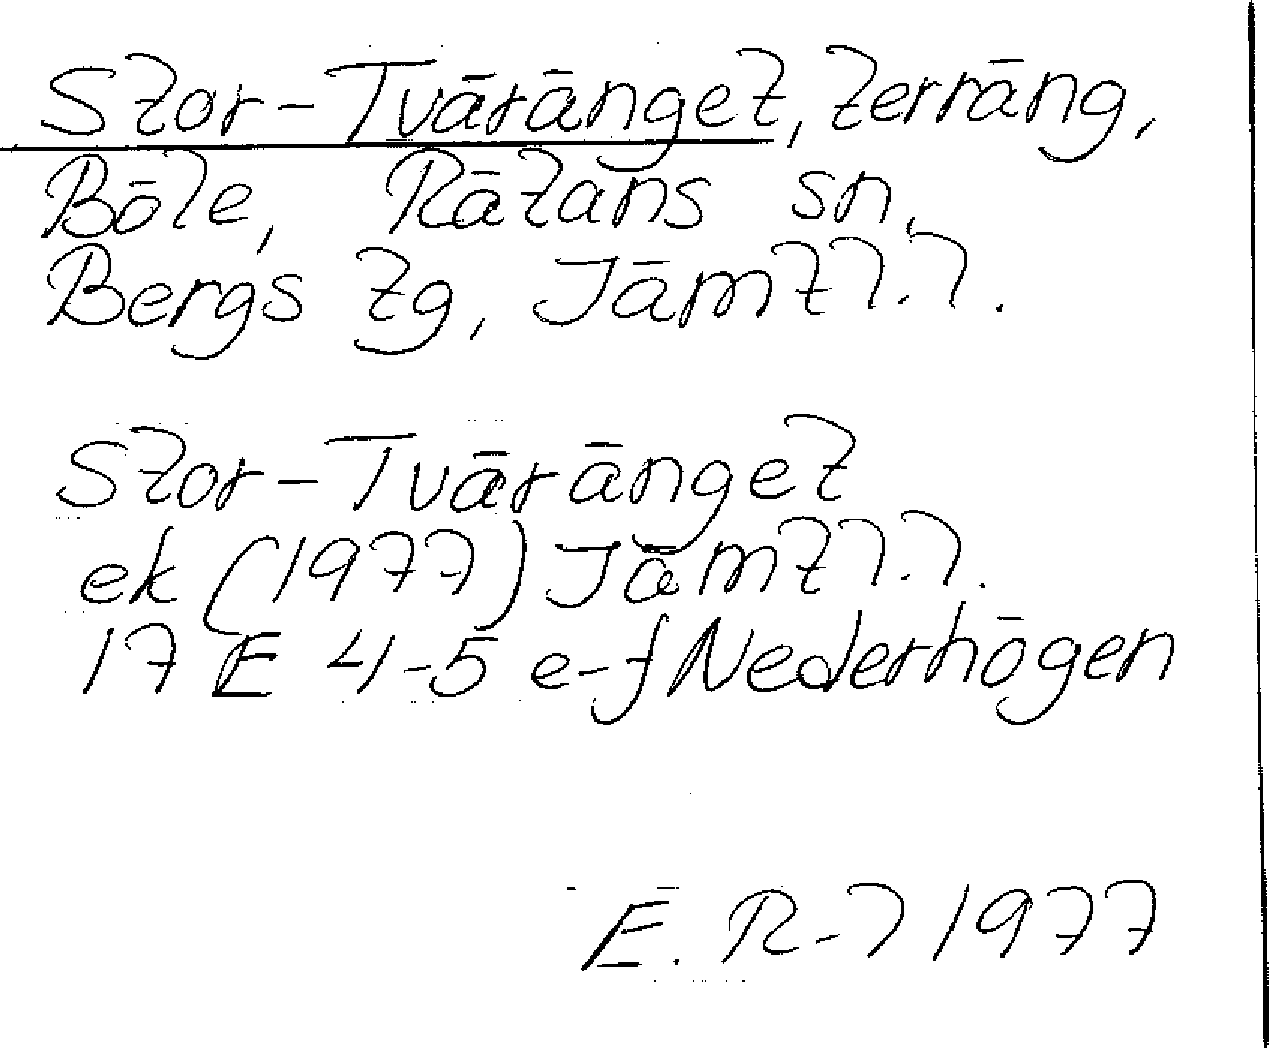 Stor-Tväränget, terräng,
Böle, Rätans sn,
Bergs tg, Jämtl.l.
Stor-Tväränget
ek (1977) Jämtl.l.
17 E 4-5 e-f Nederhögen
E. R-l 1977